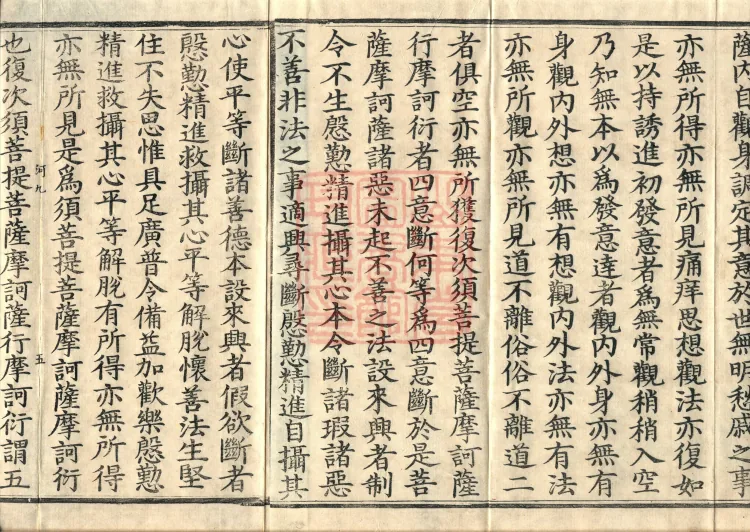 薩內自觀身調定其意於世無明愁慼之事
亦無所得亦無所見痛痒思想觀法亦復如
是以持誘進初發意者為無常觀稍稍入空
乃知無本以為發意達者觀內外身亦無有
身觀內外想亦無有想觀內外法亦無有法
亦無所觀亦無所見道不離俗俗不離道二
者俱空亦無所獲復次須菩提菩薩摩訶薩
行摩訶衍者四意斷何等為四意斷於是菩
薩摩訶薩諸惡未起不善之法設來興者制
令不生慇懃精進攝其心本令斷諸瑕諸惡
不善非法之事適興尋斷慇懃精進自攝其
心使平等斷諸善德本設來興者假欲斷者
慇懃精進救攝其心平等解脫懷善法生堅
住不失思惟具足廣普令備益加歡樂慇懃
精進救攝其心平等解脫有所得亦無所得
亦無所見是為須菩提菩薩摩訶薩摩訶衍
河九 五
也復次須菩提菩薩摩訶薩行摩訶衍謂五